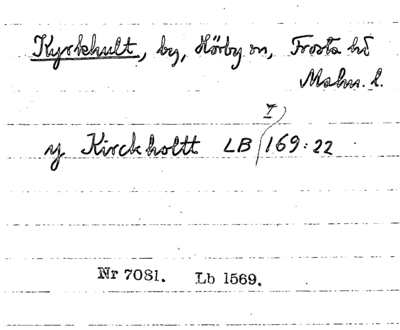 Kyrkhult, by, Hörby sn, Frosta hd
Malm. l.
I
y Kirckholtt LB 169:22
Nr 7081. Lb 1569.